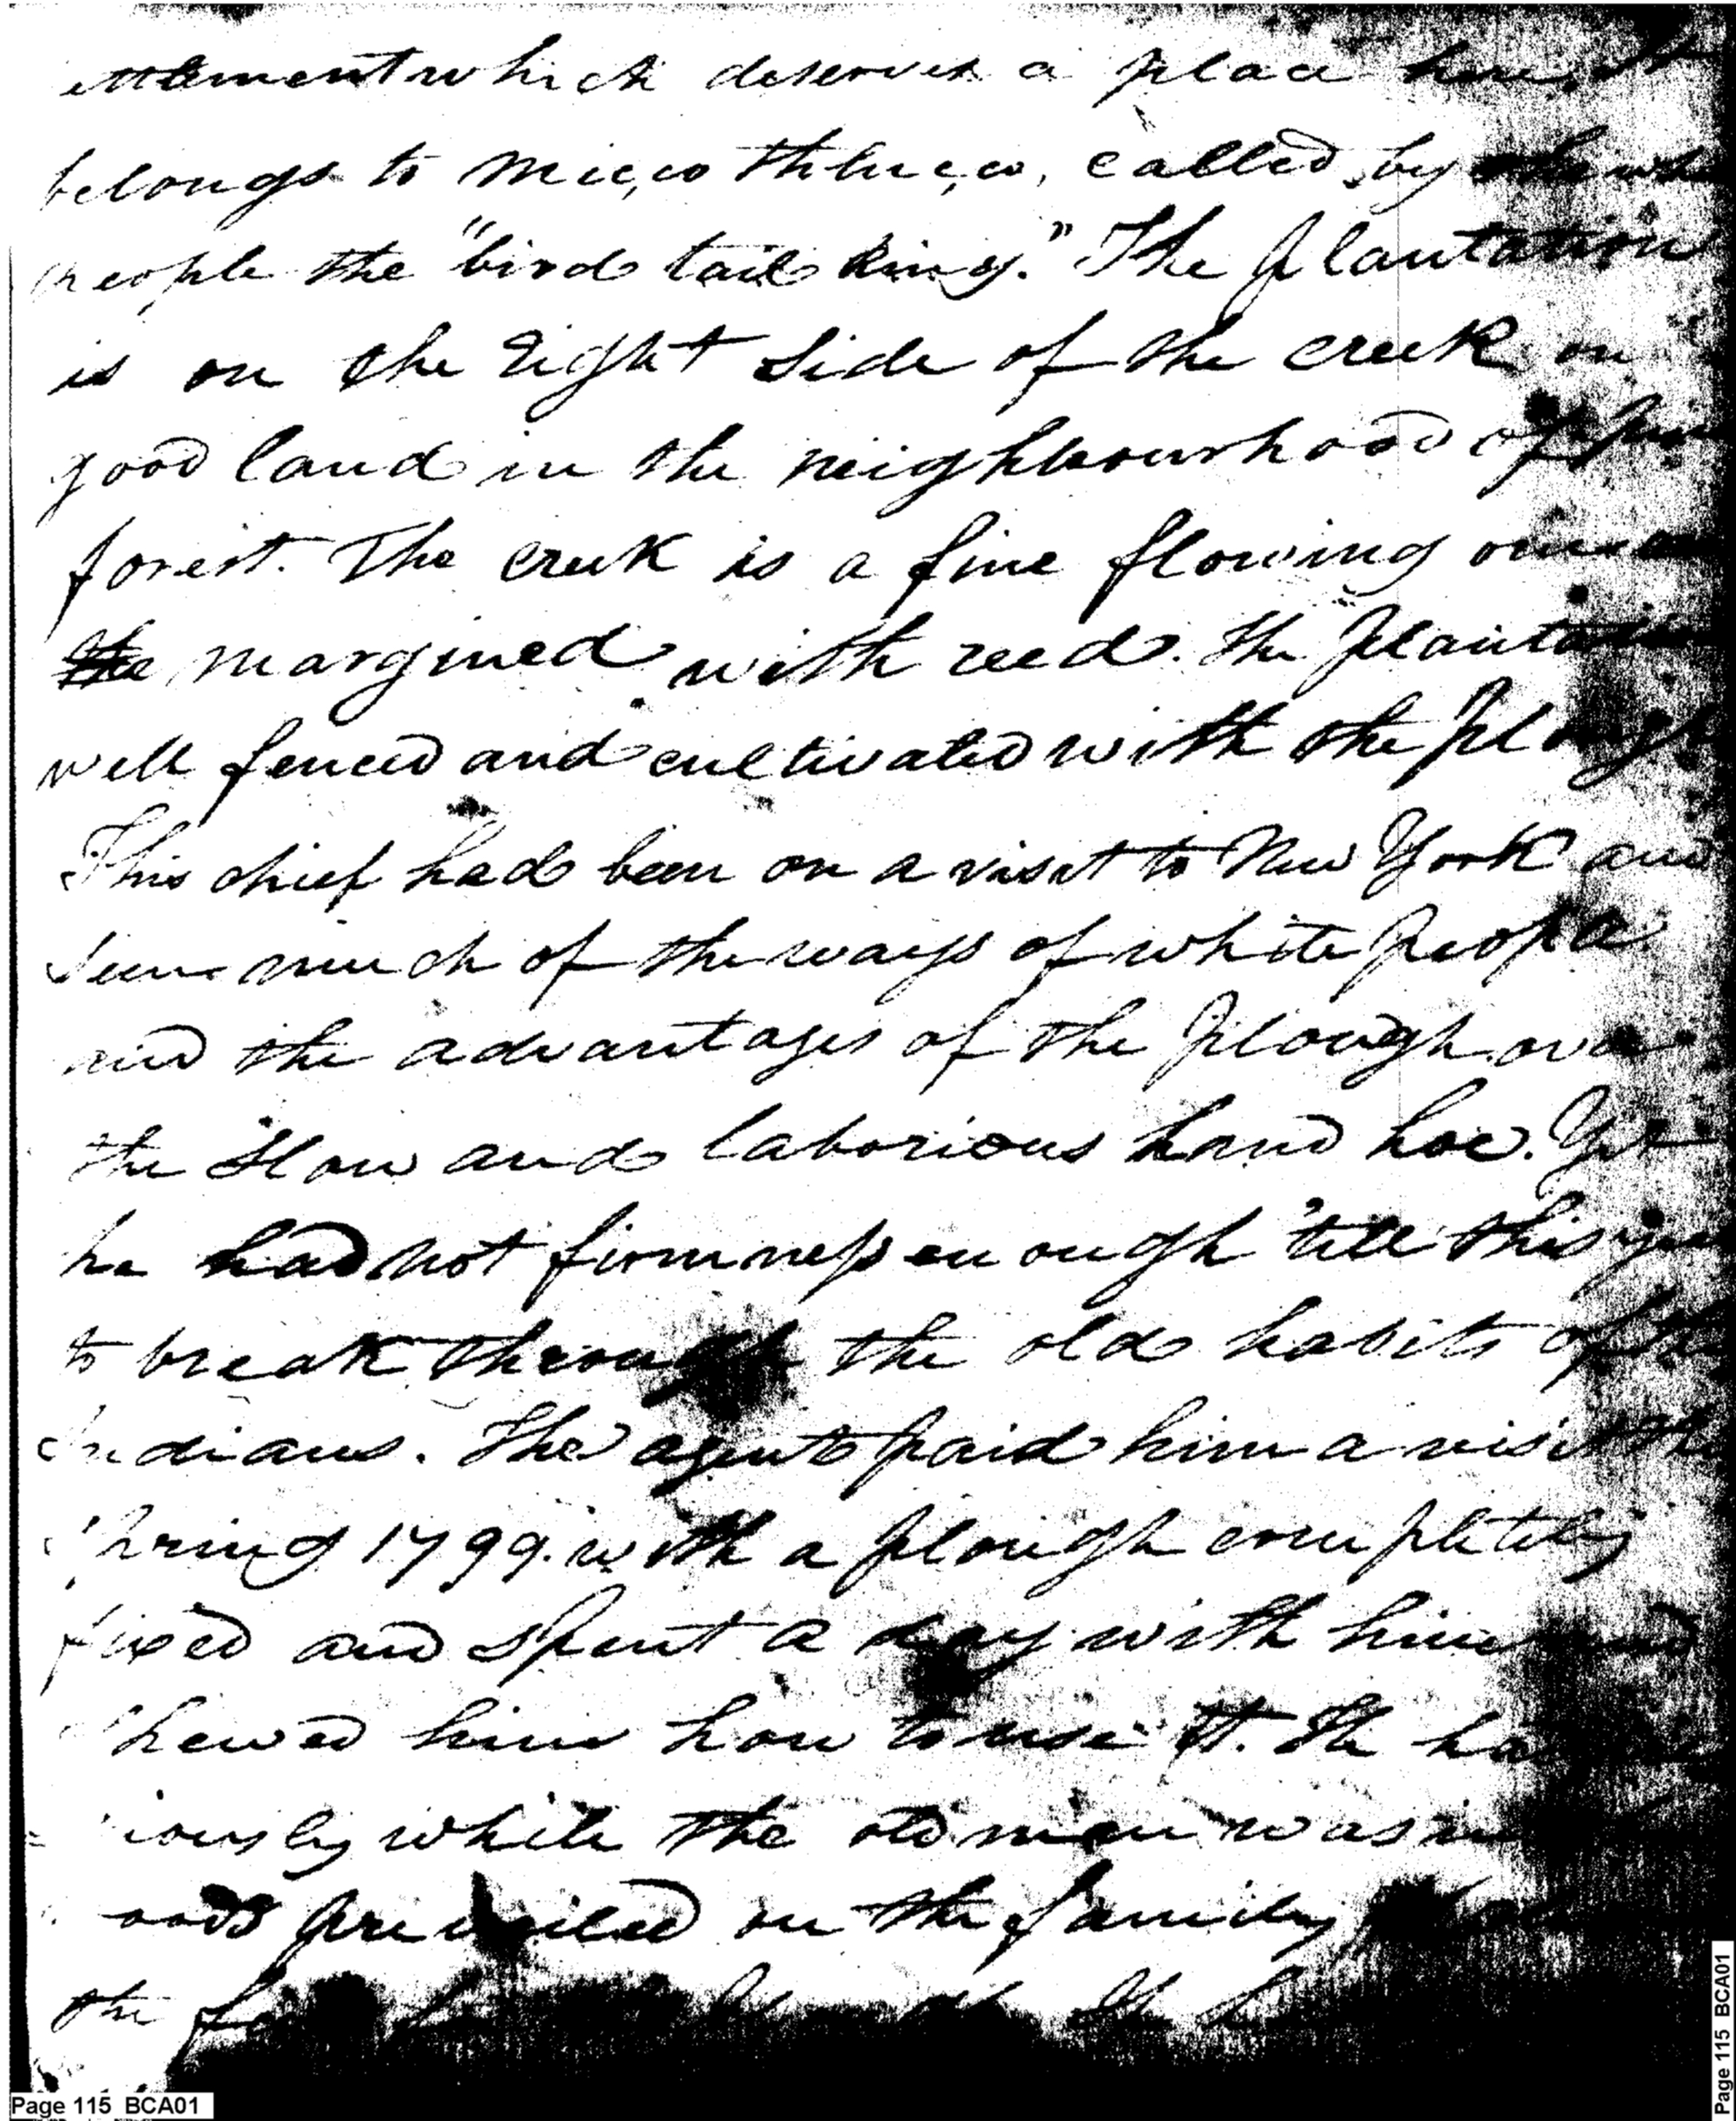 ettlement which deserves a place here. It
belongs to Mic,co thluc,co, called by the whi
people the "bird tail king." The plantation
is on the right side of the creek on
good land in the neighbourhood of pine
forest. The creek is a fine flowing one
the margined with reed. The plantation
well fenced and cultivated with the plough
This chief had been on a visit to New York and
seen much of the ways of white people
and the advantages of the plough over
the slow and laborious hand hoe. Yet
he had not firmness enough 'till this year
to break through the old habits of the
Indians. The agent paid him a visit this
spring 1799. with a plough completely
fixed and spent a day with him and
shewed him how to use it. He had
iously while the old man was in
oods prevailed on the family
the
Page 115 BCA01
Page 115 BCA01